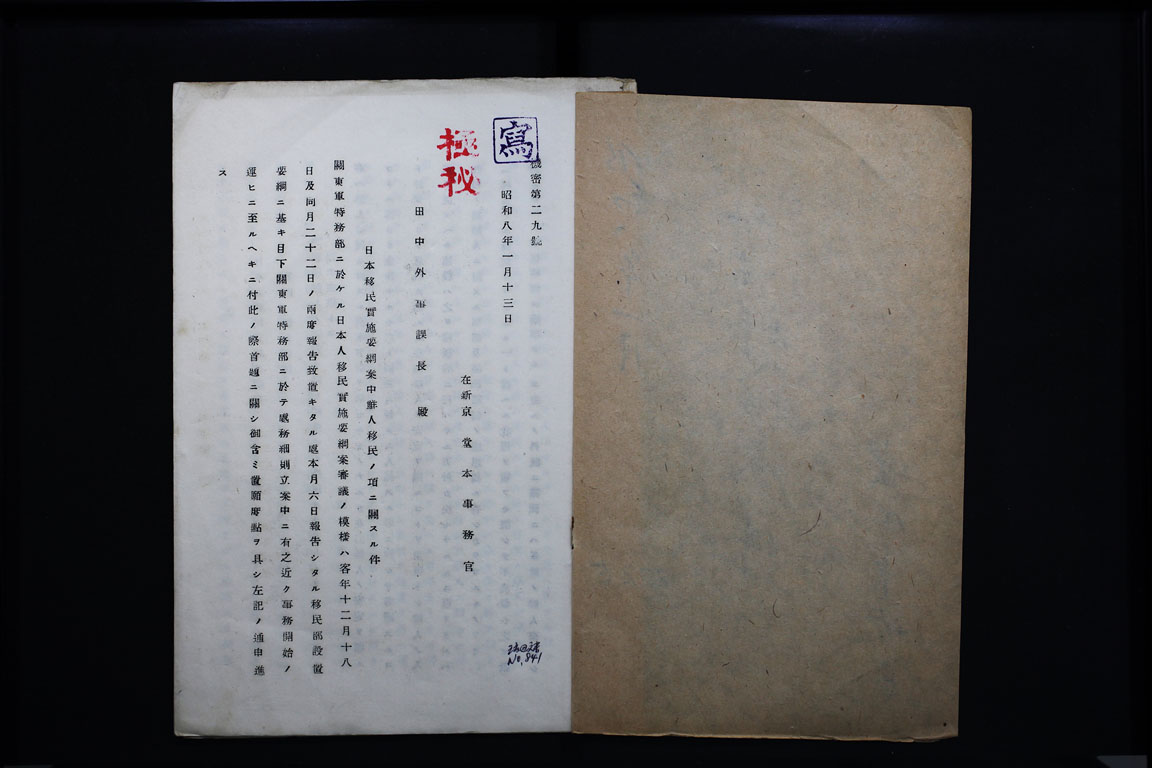 寫
極秘
機密第二九號
昭和八年一月十三日
在新京 堂本事務官
田中外事課長殿
日本移民實施要綱案中鮮人移民ノ項ニ關スル件
關東軍特務部ニ於ケル日本人移民實施要綱案審議ノ模樣ハ客年十二月十八
日及同月二十二日ノ兩度報告致置キタル處本月六日報告シタル移民部設置
要綱ニ基キ目下關東軍特務部ニ於テ處務細則立案中ニ有之近ク事務開始ノ
運ヒニ至ルヘキニ付此ノ際首題ニ關シ御含ミ置願度點ヲ具シ左記ノ通申進
ス
No. 841